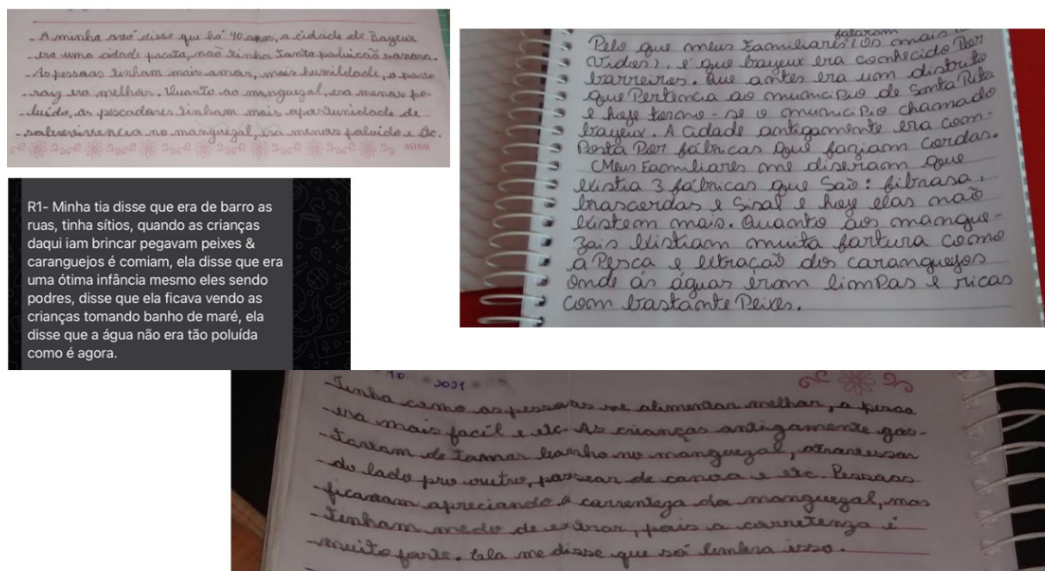 - A minha avó disse que há 40 anos, a cidade de Bayeux
era uma cidade pacata, não tinha tanta poluição sonora.
- As pessoas tinham mais amor, mais humildade, a
era melhor. Quanto ao manguezal, era menos po-
- luído, os pescadores tinham mais oportunidade de
- sobrevivencia no manguezal, era menos poluído e etc.
ASTRAL
R1- Minha tia disse que era de barro as
ruas, tinha sítios, quando as crianças
daqui iam brincar pegavam peixes &
caranguejos é comiam, ela disse que era
uma ótima infância mesmo eles sendo
podres, disse que ela ficava vendo as
crianças tomando banho de maré, ela
disse que a água não era tão poluída
como é agora.
falaram
Pelo que meus Familiares (os mais
vidos), é que bayeux era conhecido Por
barreires. Que antes era um distrito
que Pertincia ao município de Santa Rita
e hoje torno-se o município chamado
bayeux. A cidade antigamente era com-
Posta Por fábricas que faziam cordas.
Meus Familiares me diseram que
Existia 3 fábricas que São: fibrasa,
brascordas e Sisal e hoje elas não
Existem mais. Quanto aos mangue-
zais Existiam muita fartura como
a Pesca e Etração dos caranguejos
onde ás águas eram limPas e ricas
com bastante Peixes.
10 2021
- Tinha como as pessoas se alimentar melhor, a pesca
- era mais facil e etc. As crianças antigamente gos-
- tavam de tomar banho no manguezal, atravessar
- do lado pro outro, passear de canoa e etc. Pessoas
- ficavam apreciando a correntega do manguezal, mas
- tinham medo de entrar, pois a corretenza é
- muito forte. Ela me disse que só lembra isso.